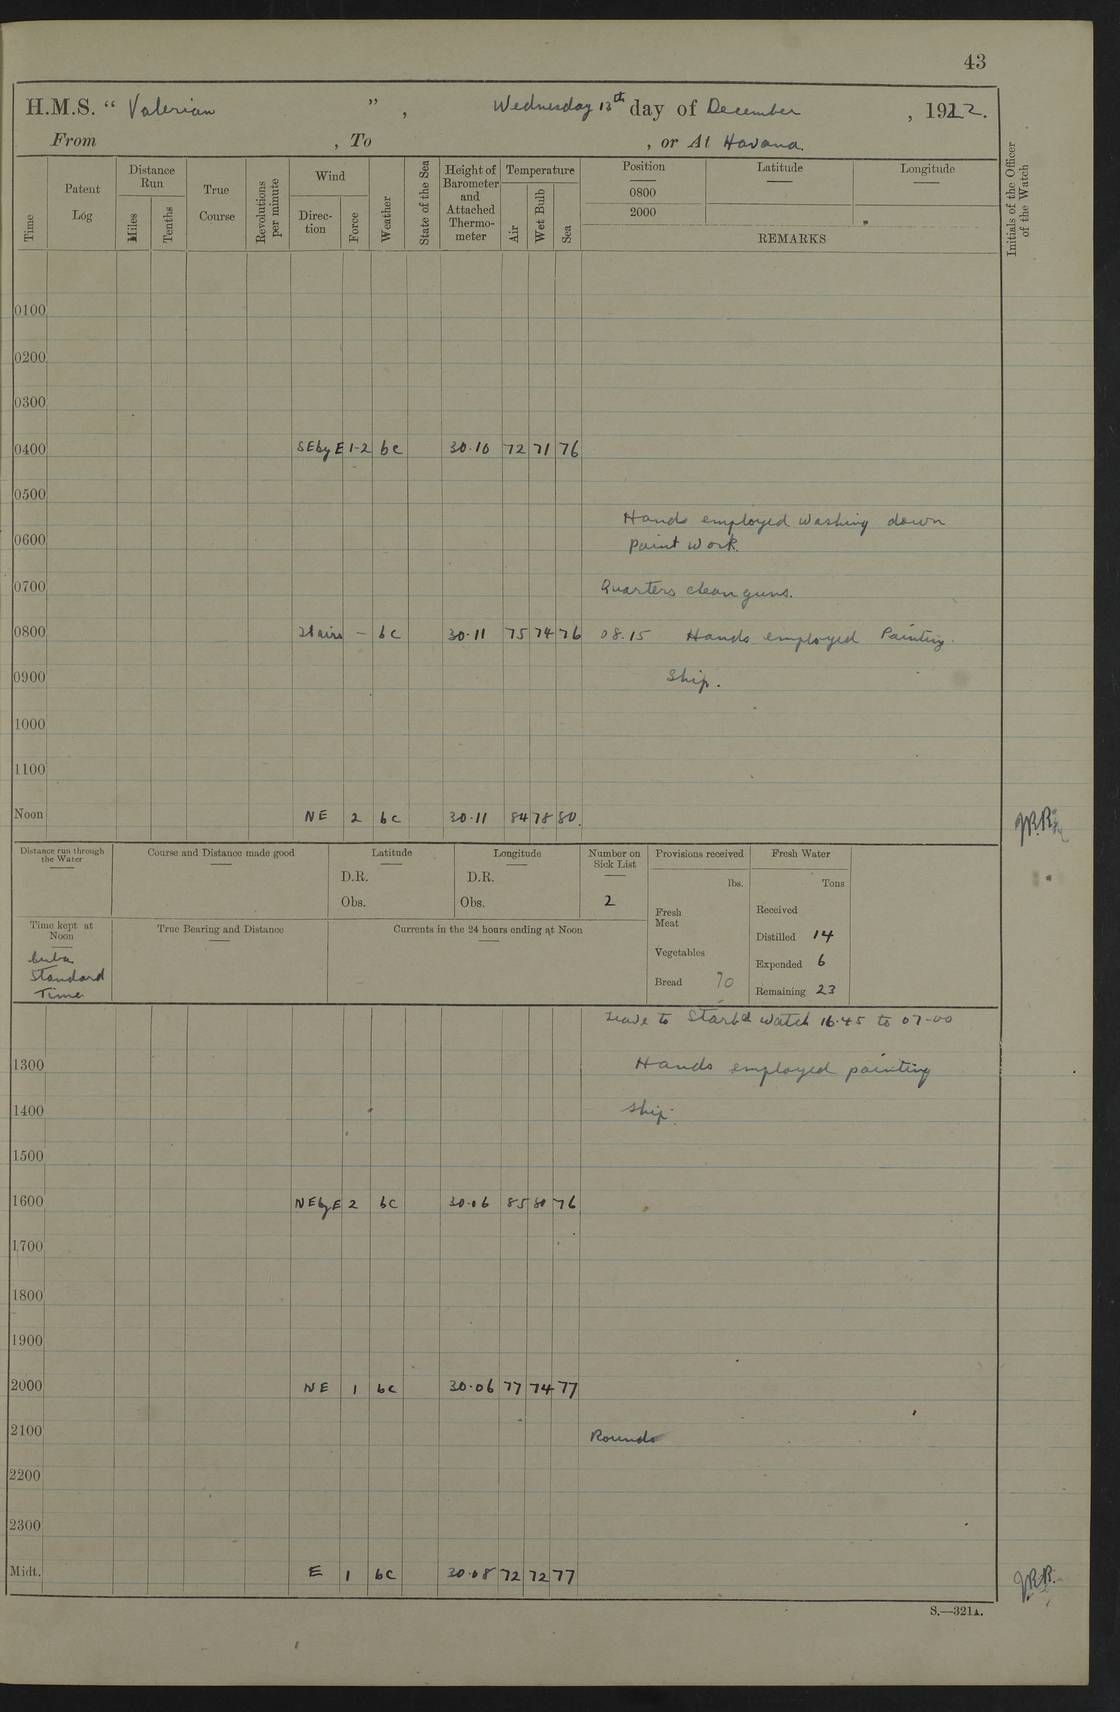 43
H.M.S. "Valerian", Wednesday 13th day of December, 1922.
From , To , or At Havana
Time Patent Log Distance Run Miles Tenths True Course Revolutions per minute Wind Direction Force Weather State of the Sea Height of Barometer and Attached Thermometer Temperature Air Wet Bulb Sea Position 0800 2000 Latitude Longitude
REMARKS
Initials of the Officer of the Watch
0100
0200
0300
0400 SEbyE 1-2 bc 30.10 72 71 76
0500
Hands employed washing down
0600 paint work.
0700 Quarters clean guns.
0800 - bc 30.11 75 74 76 08.15 Hands employed Painting
0900 Ship.
1000
1100
Noon NE 2 bc 30.11 84 78 80
Distance run through the Water Course and Distance made good Latitude Longitude Number on Sick List Provisions received Fresh Water
D.R. D.R. lbs. Tons
Obs. Obs. 2 Fresh Meat Received
Time kept at Noon True Bearing and Distance Currents in the 24 hours ending at Noon Distilled 14
Cuba Vegetables Expended 6
Standard Bread 70 Remaining 23
Time
Leave to Starbd Watch 16.45 to 07-00
1300 Hands employed painting
1400 ship.
1500
1600 NEbyE 2 bc 30.06 85 80 76
1700
1800
1900
2000 NE 1 bc 30.06 77 74 77
2100 Rounds
2200
2300
Midt. E 1 bc 30.08 72 72 77
S.—321A.